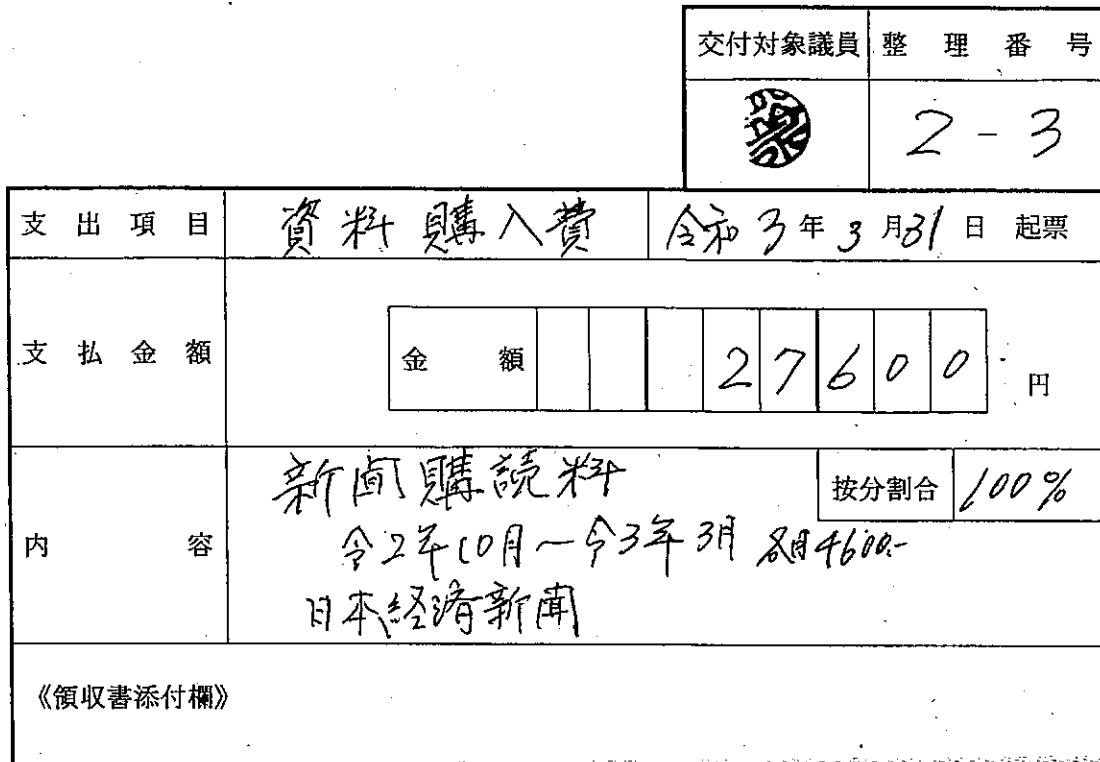 交付対象議員 整理番号
2-3
支出項目 資料購入費 令和3年3月31日 起票
支払金額 金額 27600 円
新聞購読料 按分割合 100%
内容 令2年10月～令3年3月 各月4600.-
日本経済新聞
《領収書添付欄》